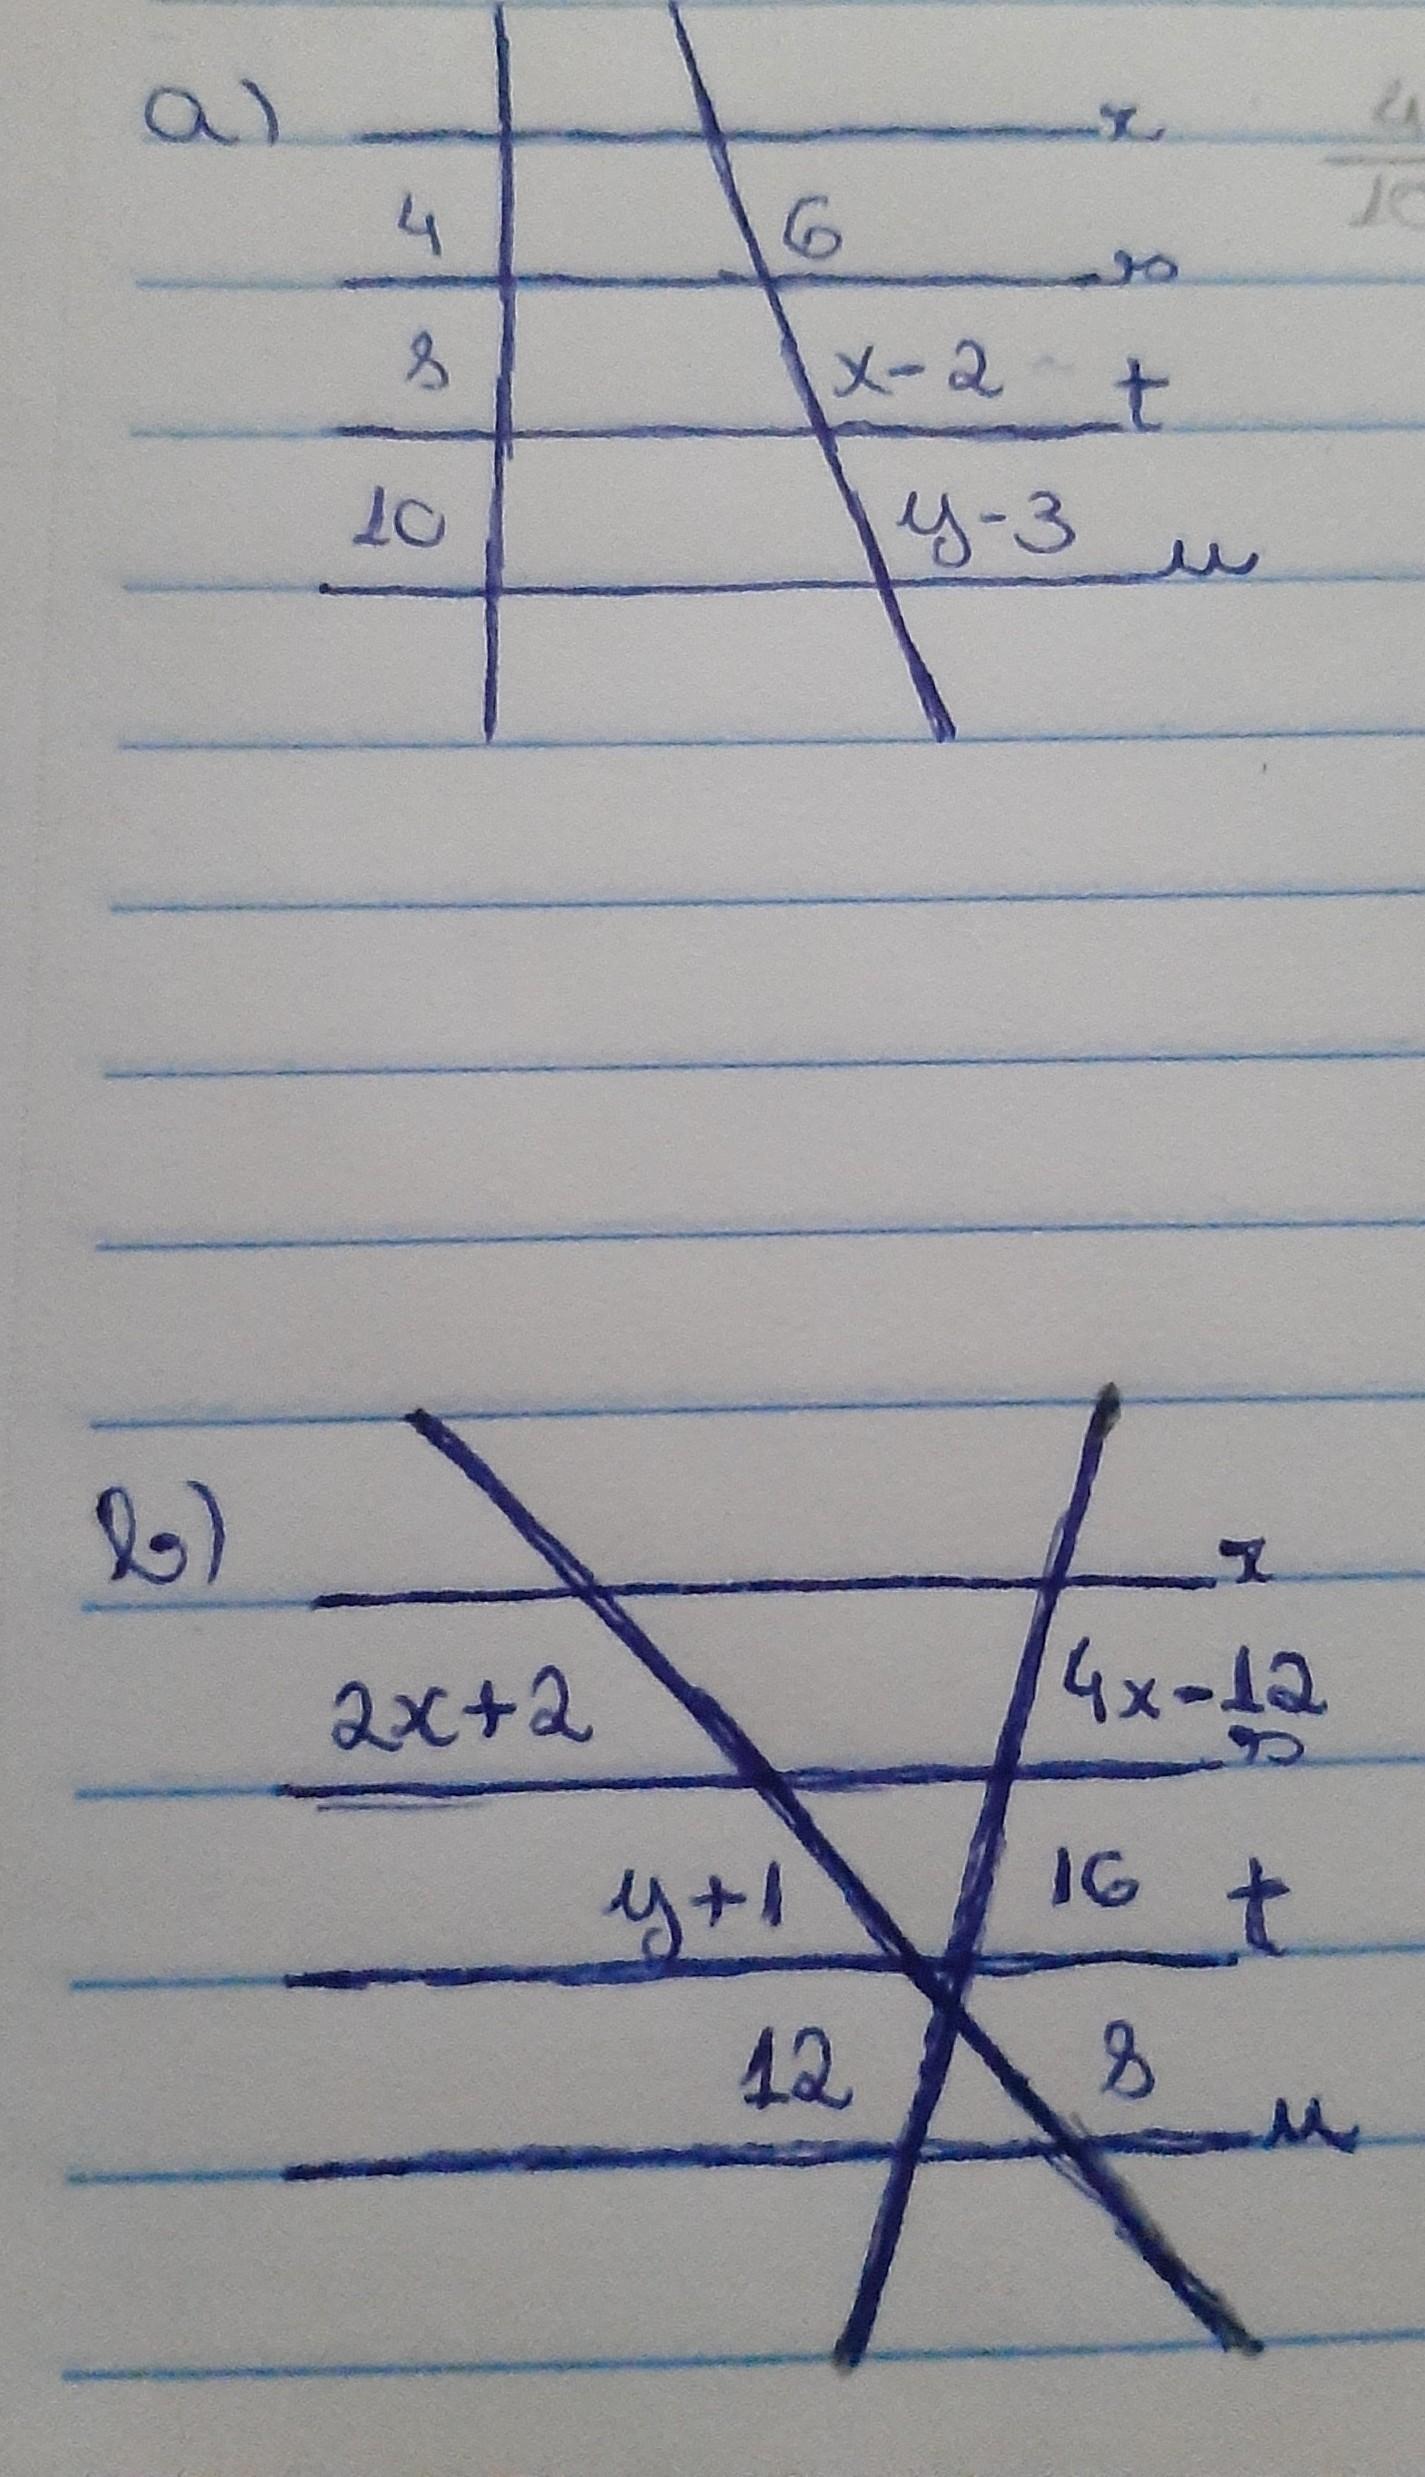 a)
r
4 6
s
8 x-2 t
10 y-3
u
4
10
b)
r
2x+2 4x-12
s
y+1 16 t
12 8
u